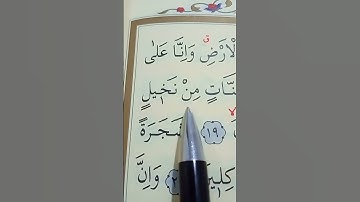 الْاَرْضِ ۗ وَاِنَّا عَلٰى
نَّاتٍ مِنْ نَخ۪يلٍ
﴿١٩﴾ شَجَرَةً
كِل۪ي وَاِنَّ